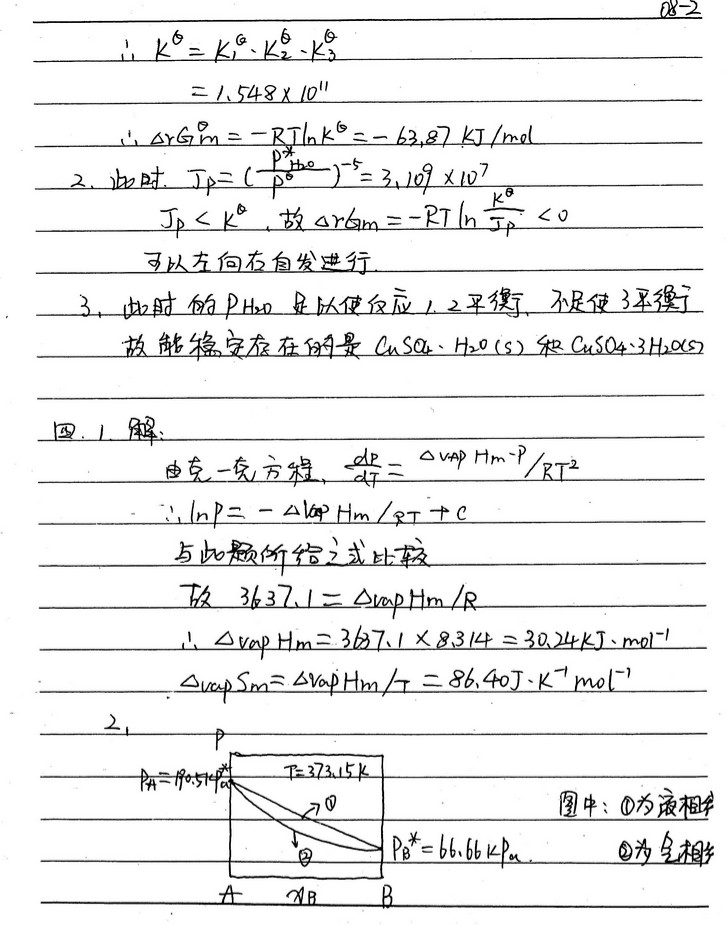 08-2
∴ K^θ = K₁^θ · K₂^θ · K₃^θ
= 1.548 × 10¹¹
∴ ΔrGm^θ = -RTlnK^θ = -63.87 KJ/mol
2. 此时. Jp = (P*H₂O / P^θ)⁻⁵ = 3.109 × 10⁷
Jp < K^θ, 故 ΔrGm = -RT ln K^θ/Jp < 0
可以左向右自发进行
3. 此时的PH₂O 足以使反应1.2平衡, 不足使3平衡
故能稳定存在的是 CuSO₄·H₂O(s) 和 CuSO₄·3H₂O(s)
四. 1. 解:
由克-克方程, dP/dT = ΔvapHm·P/RT²
∴ lnP = -ΔvapHm/RT + C
与此题所给之式比较
故 3637.1 = ΔvapHm/R
∴ ΔvapHm = 3637.1 × 8.314 = 30.24KJ·mol⁻¹
ΔvapSm = ΔvapHm/T = 86.40J·K⁻¹mol⁻¹
2,
P
PA* = 190.5kPa
T=373.15K
①
②
PB* = 66.66kPa.
图中: ①为液相
②为气相
A xB B